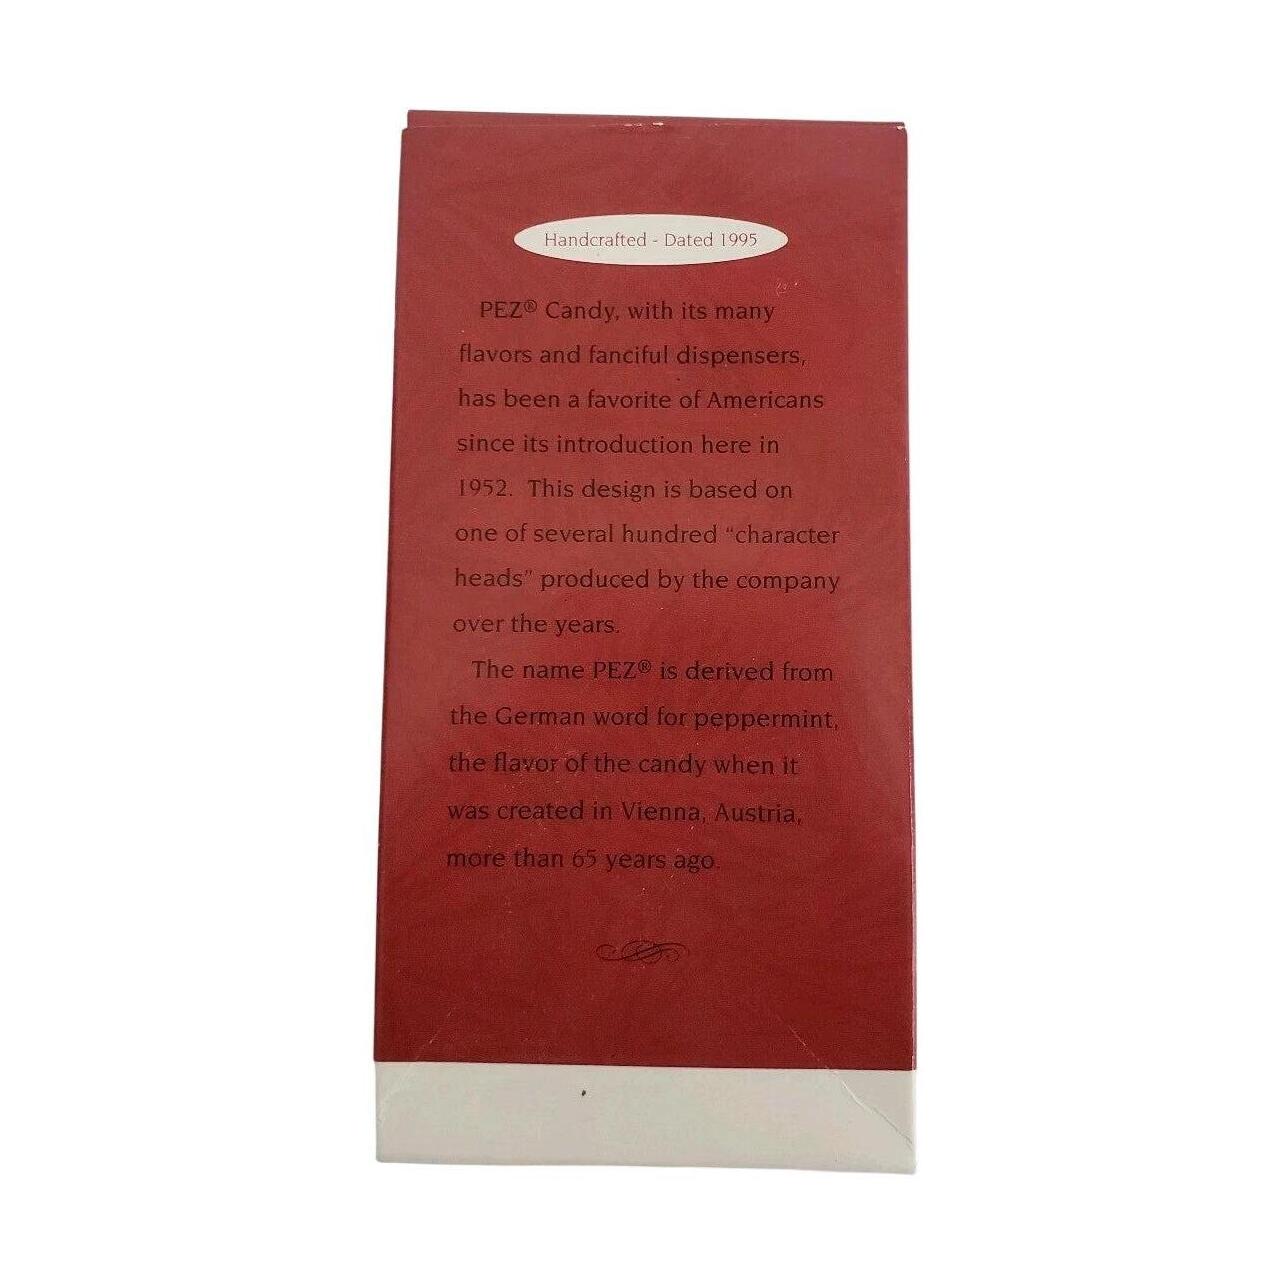 Handcrafted - Dated 1995
PEZ® Candy, with its many
flavors and fanciful dispensers,
has been a favorite of Americans
since its introduction here in
1952. This design is based on
one of several hundred “character
heads” produced by the company
over the years.
The name PEZ® is derived from
the German word for peppermint,
the flavor of the candy when it
was created in Vienna, Austria,
more than 65 years ago.